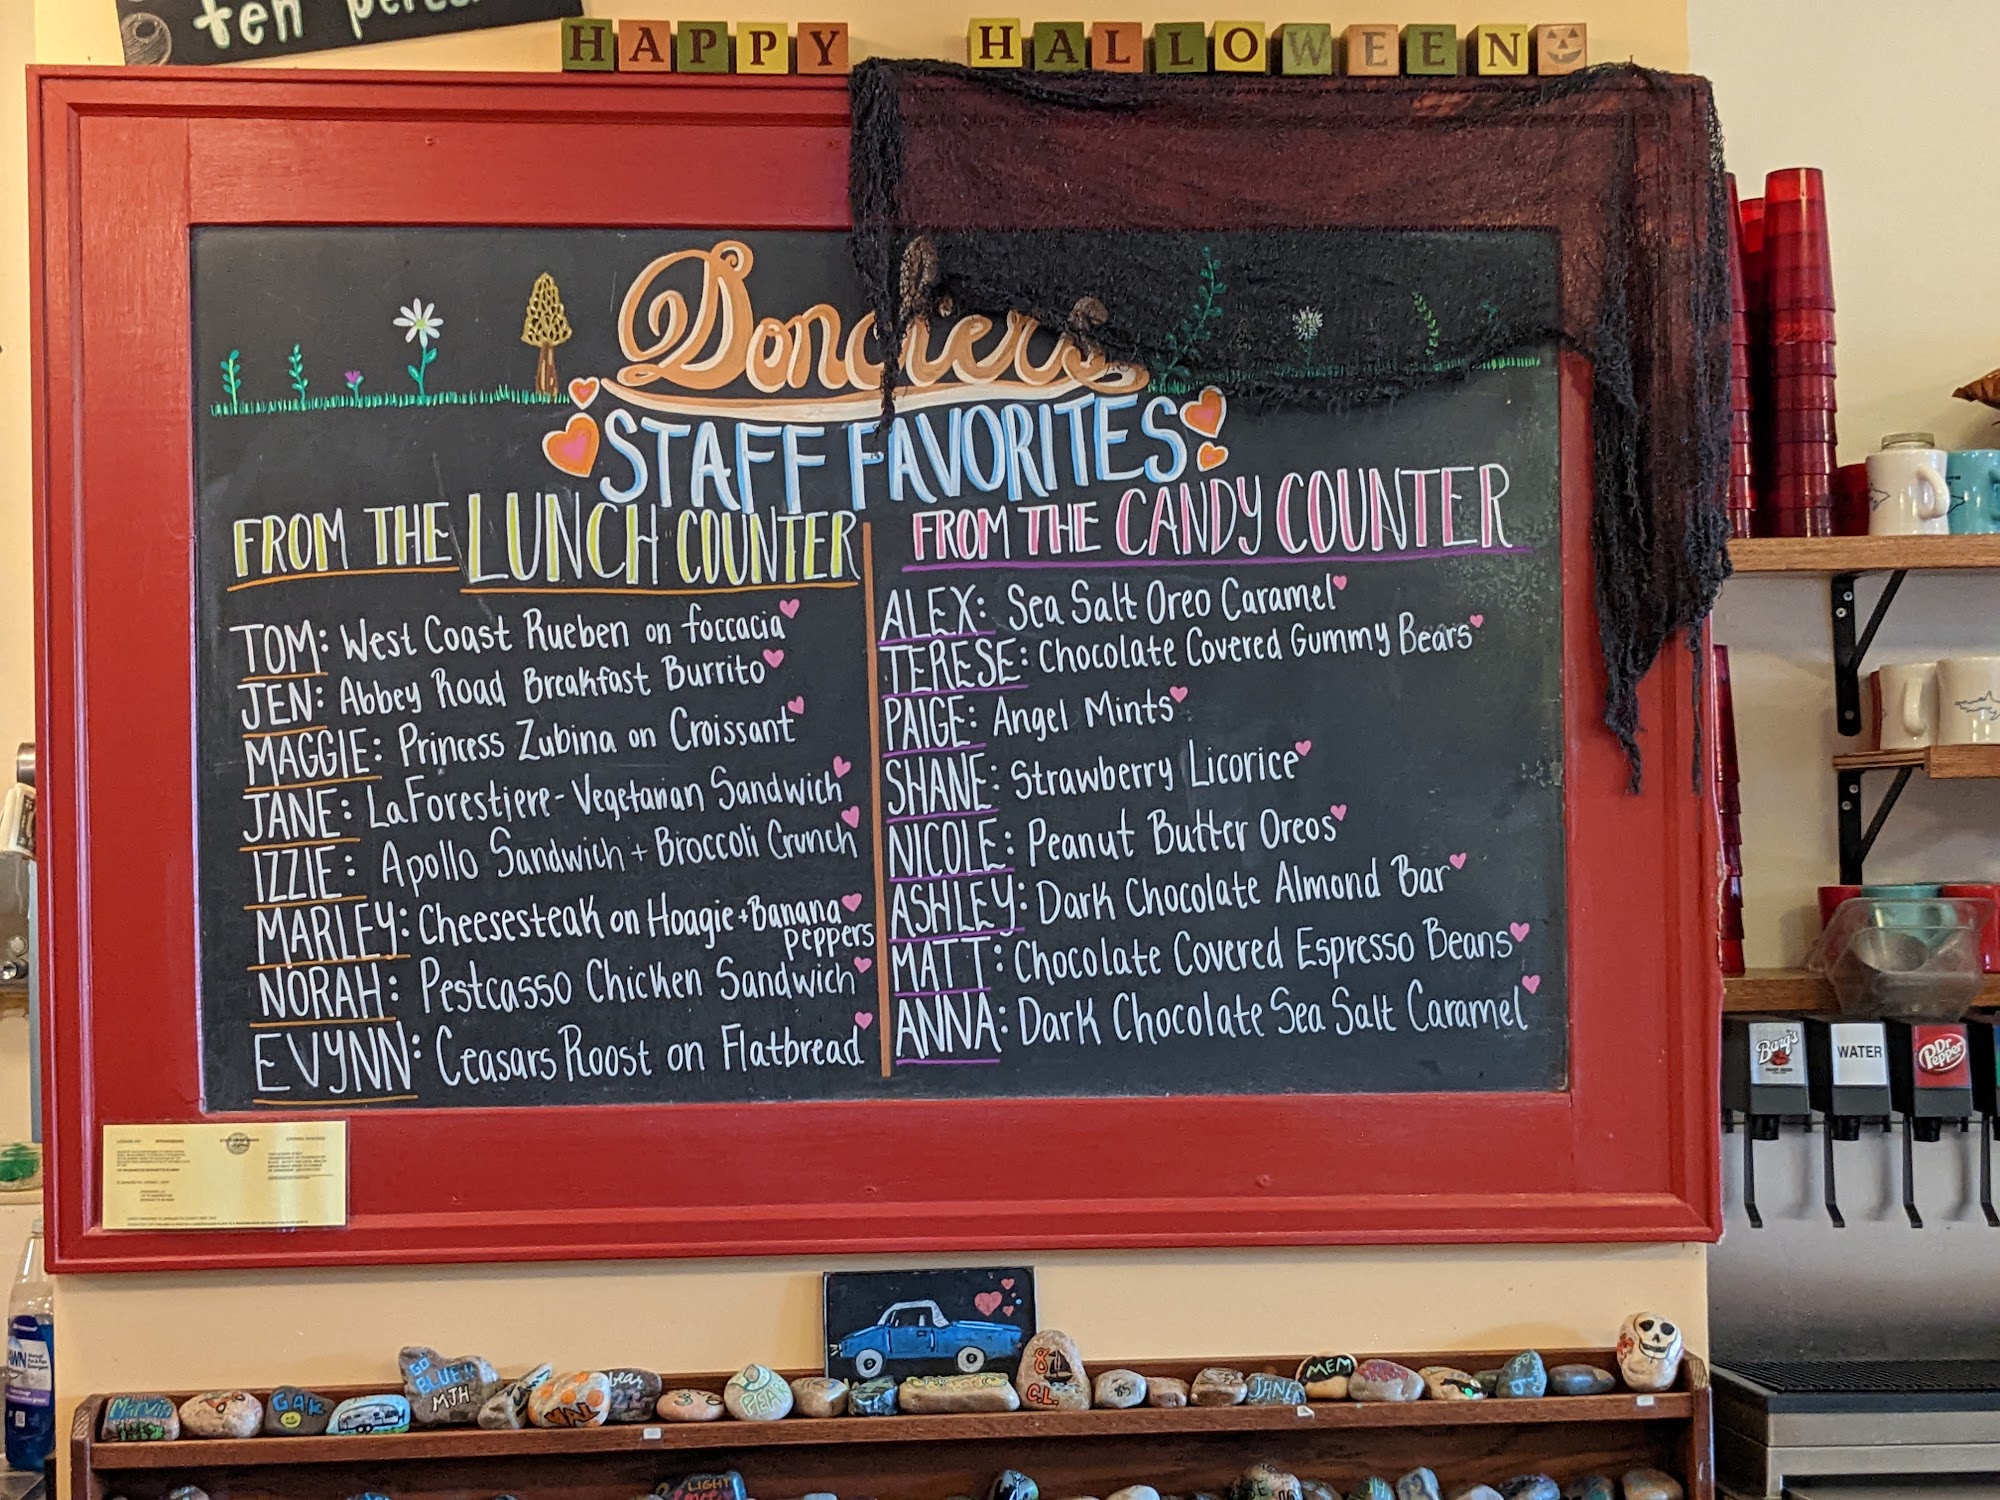 ten
HAPPY HALLOWEEN
Donckers
STAFF FAVORITES
FROM THE LUNCH COUNTER
TOM: West Coast Rueben on foccacia
JEN: Abbey Road Breakfast Burrito
MAGGIE: Princess Zubina on Croissant
JANE: LaForestiere - Vegetarian Sandwich
IZZIE: Apollo Sandwich + Broccoli Crunch
MARLEY: Cheesesteak on Hoagie + Banana
peppers
NORAH: Pestcasso Chicken Sandwich
EVYNN: Ceasars Roost on Flatbread
FROM THE CANDY COUNTER
ALEX: Sea Salt Oreo Caramel
TERESE: Chocolate Covered Gummy Bears
PAIGE: Angel Mints
SHANE: Strawberry Licorice
NICOLE: Peanut Butter Oreos
ASHLEY: Dark Chocolate Almond Bar
MATT: Chocolate Covered Espresso Beans
ANNA: Dark Chocolate Sea Salt Caramel
Barq's
WATER
Dr Pepper
Marvin
GAK
GO
BLUE!!
MJH
C.L.
JANE
MEM
LIGHT